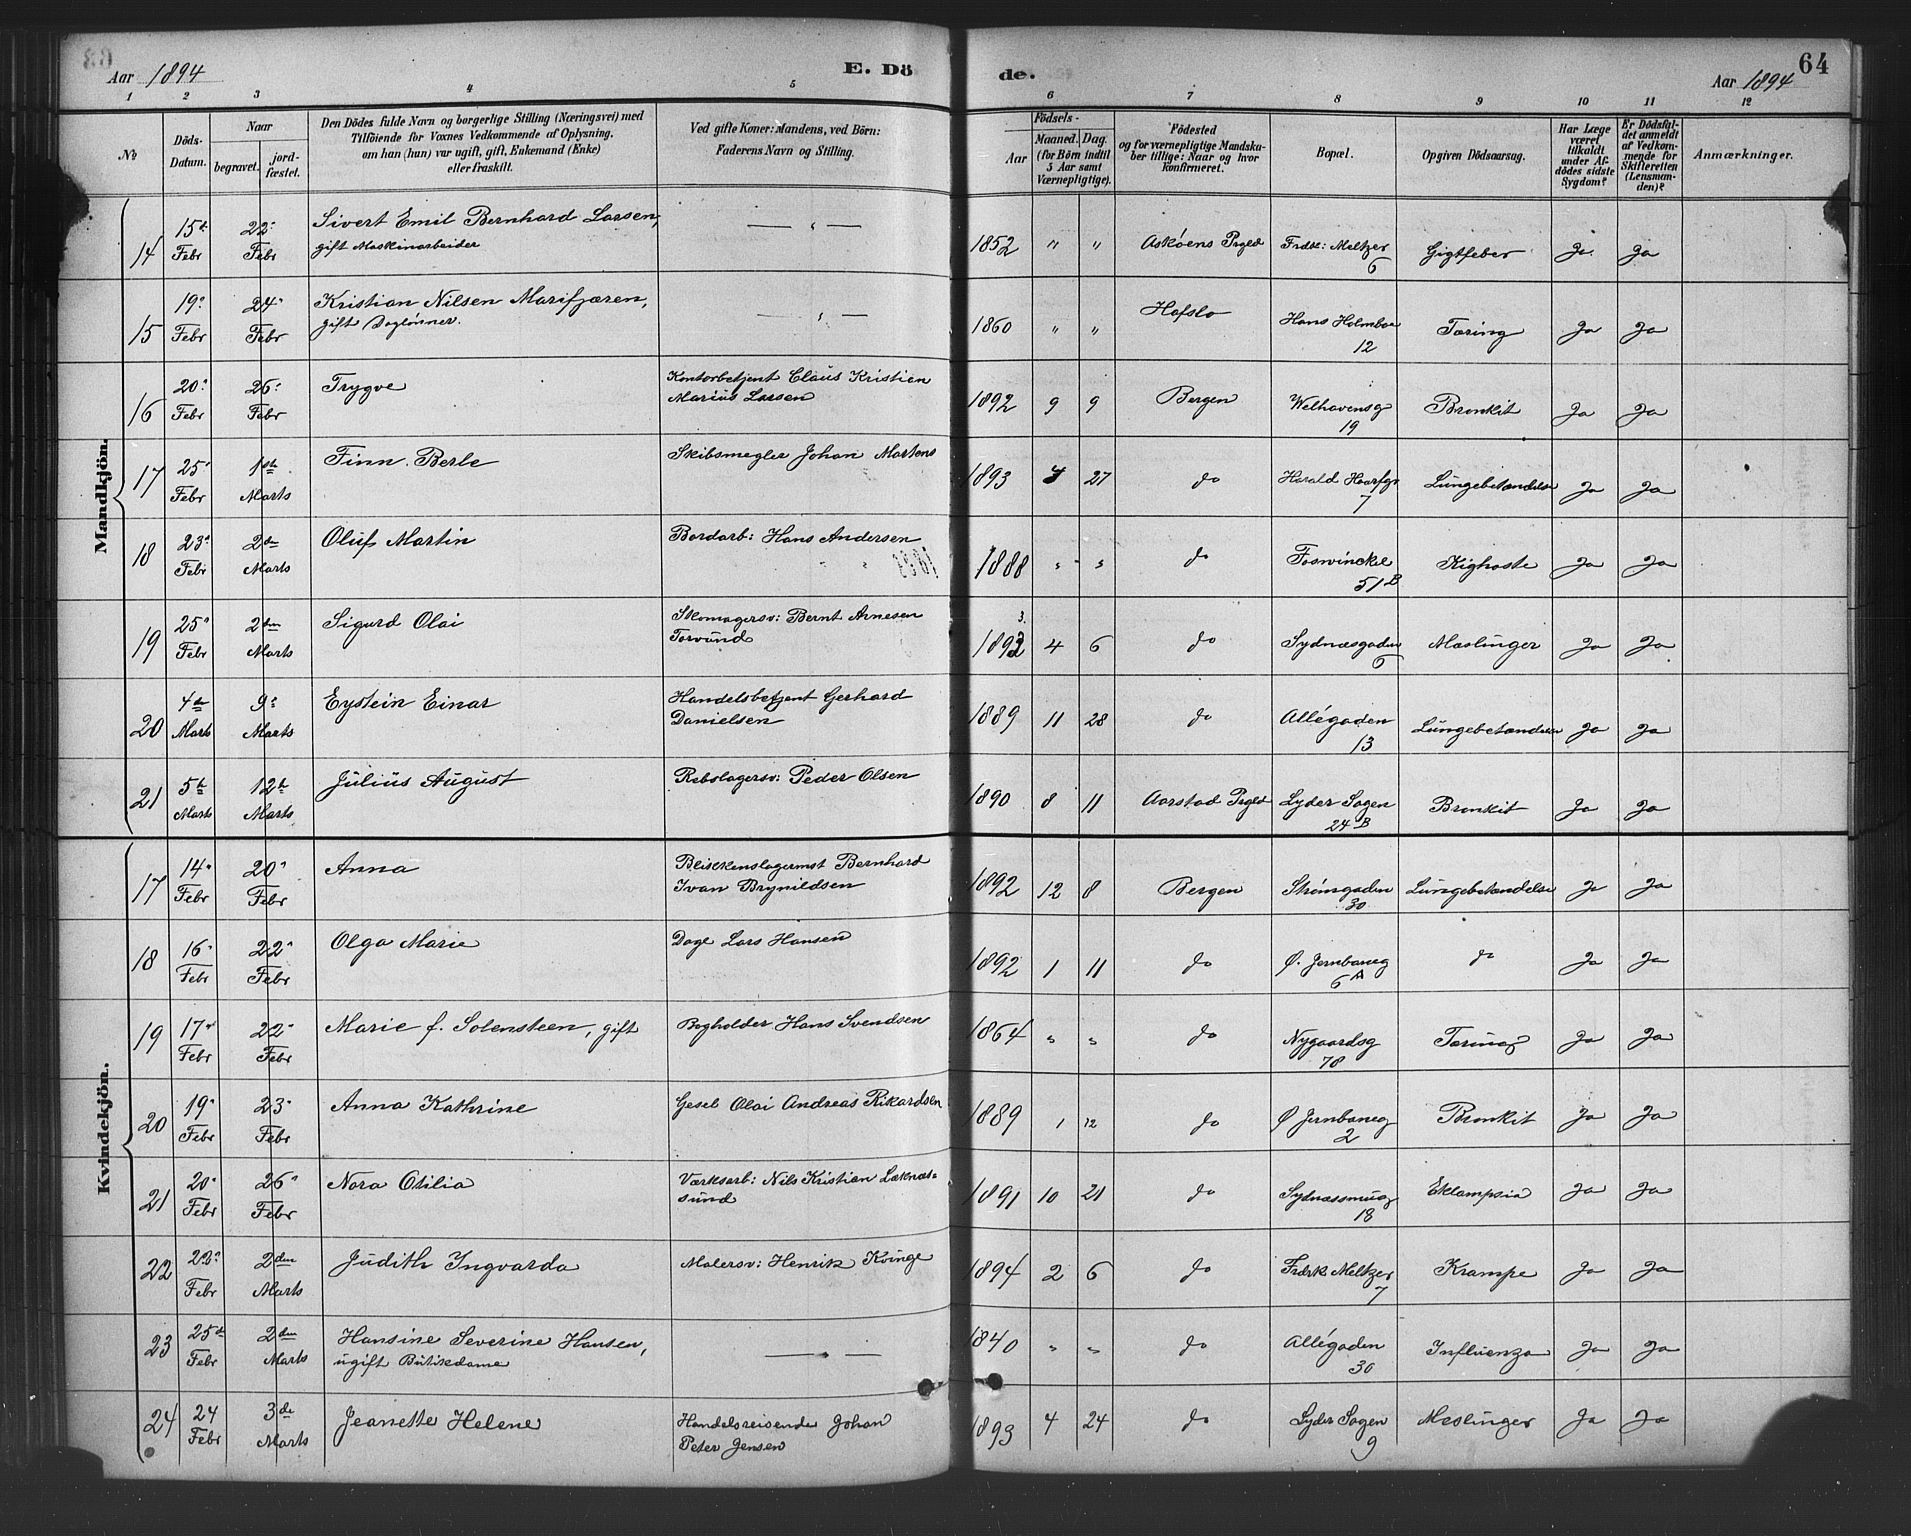 Aar 1894
E. Dö
de.
Aar 1894
64
1 2 3 4 5 6 7 8 9 10 11 12
No
Döds-
Datum.
Naar
begravet.
jord-
fæstet.
Den Dödes fulde Navn og borgerlige Stilling (Næringsvei) med
Tilföiende for Voxnes Vedkommende af Oplysning,
om han (hun) var ugift, gift, Enkemand (Enke)
eller fraskilt.
Ved gifte Koner: Mandens, ved Börn:
Faderens Navn og Stilling.
Födsels-
Aar
Maaned. Dag.
(for Börn indtil
5 Aar samt
Værnepligtige).
Födested
og for værnepligtige Mandska-
ber tillige: Naar og hvor
konfirmeret.
Bopæl.
Opgiven Dödsaarsag.
Har Læge
været
tilkaldt
under Af-
dödes sidste
Sygdom?
Er Dödsfal-
det anmeldt
af Vedkom-
mende for
Skifteretten
(Lensman-
den)?
Anmærkninger.
Mandkjön.
14 15de Febr 22 Febr Sivert Emil Bernhard Larsen,
gift Maskinarbeider
— " — 1852 " " Askøens Prgld Frdk: Meltzer
6
Gigtfeber Ja Ja
15 19 Febr 24 Febr Kristian Nilsen Marifjæren,
gift Daglønner.
— " — 1860 " " Hafslo Hans Holmboe
12
Tæring Ja Ja
16 20 Febr 26 Febr Trygve
Kontorbetjent Claus Kristian
Marius Larsen
1892 9 9 Bergen Welhavensg
19
Bronkit Ja Ja
17 25 Febr 1ste Marts Finn Berle
Skibsmegler Johan Martens
1893 27 do Harald Haarfgr
7
Lungebetændelse Ja Ja
18 23 Febr 2den Marts Oluf Martin
Bordarb: Hans Andersen
1888 " " do Fosvinckel
51B
Kighoste Ja Ja
19 25 Febr 2den Marts Sigurd Olai
Skomagersv: Bernt Arnesen
Torvund
3.
1893 4 6 do Sydnæsgaden
6
Mæslinger Ja Ja
20 4de Marts 9 Marts Eystein Einar
Handelsbetjent Gerhard
Danielsen
1889 11 28 do Allégaden
13
Lungebetændelse Ja Ja
21 5te Marts 12te Marts Julius August
Rebslagersv: Peder Olsen
1890 8 11 Aarstad Prgld Lyder Sagen
24B
Bronkit Ja Ja
Kvindekjön.
17 14 Febr 20 Febr Anna
Blikkenslagermst Bernhard
Ivan Brynildsen
1892 12 8 Bergen Strømgaden
30
Lungebetændelse Ja Ja
18 16 Febr 22 Febr Olga Marie
Dagl Lars Hansen
1892 1 11 do Ø. Jernbaneg
6A
do Ja Ja
19 17 Febr 22 Febr Marie f. Solensteen, gift
Bogholder Hans Svendsen
1864 " " do Nygaardsg
78
Tæring Ja Ja
20 19 Febr 23 Febr Anna Kathrine
Gesel Olai Andreas Rikardsen
1889 1 12 do Ø Jernbaneg
2
Bronkit Ja Ja
21 20 Febr 26 Febr Nora Otilia
Værksarb: Nils Kristian Læknæs-
sund
1891 10 21 do Sydnæssmug
18
Eklampsia Ja Ja
22 22 Febr 2den Marts Judith Ingvarda
Malersv: Henrik Kvinge
1894 2 6 do Frdrk Meltzer
7
Krampe Ja Ja
23 25de Febr 2den Marts Hansine Severine Hansen,
ugift Butikdame
— " — 1840 " " do Allégaden
30
Influenza Ja Ja
24 24 Febr 3de Marts Jeanette Helene
Handelsreisende Johan
Peter Jensen
1893 4 24 do Lyder Sagen
9
Meslinger Ja Ja